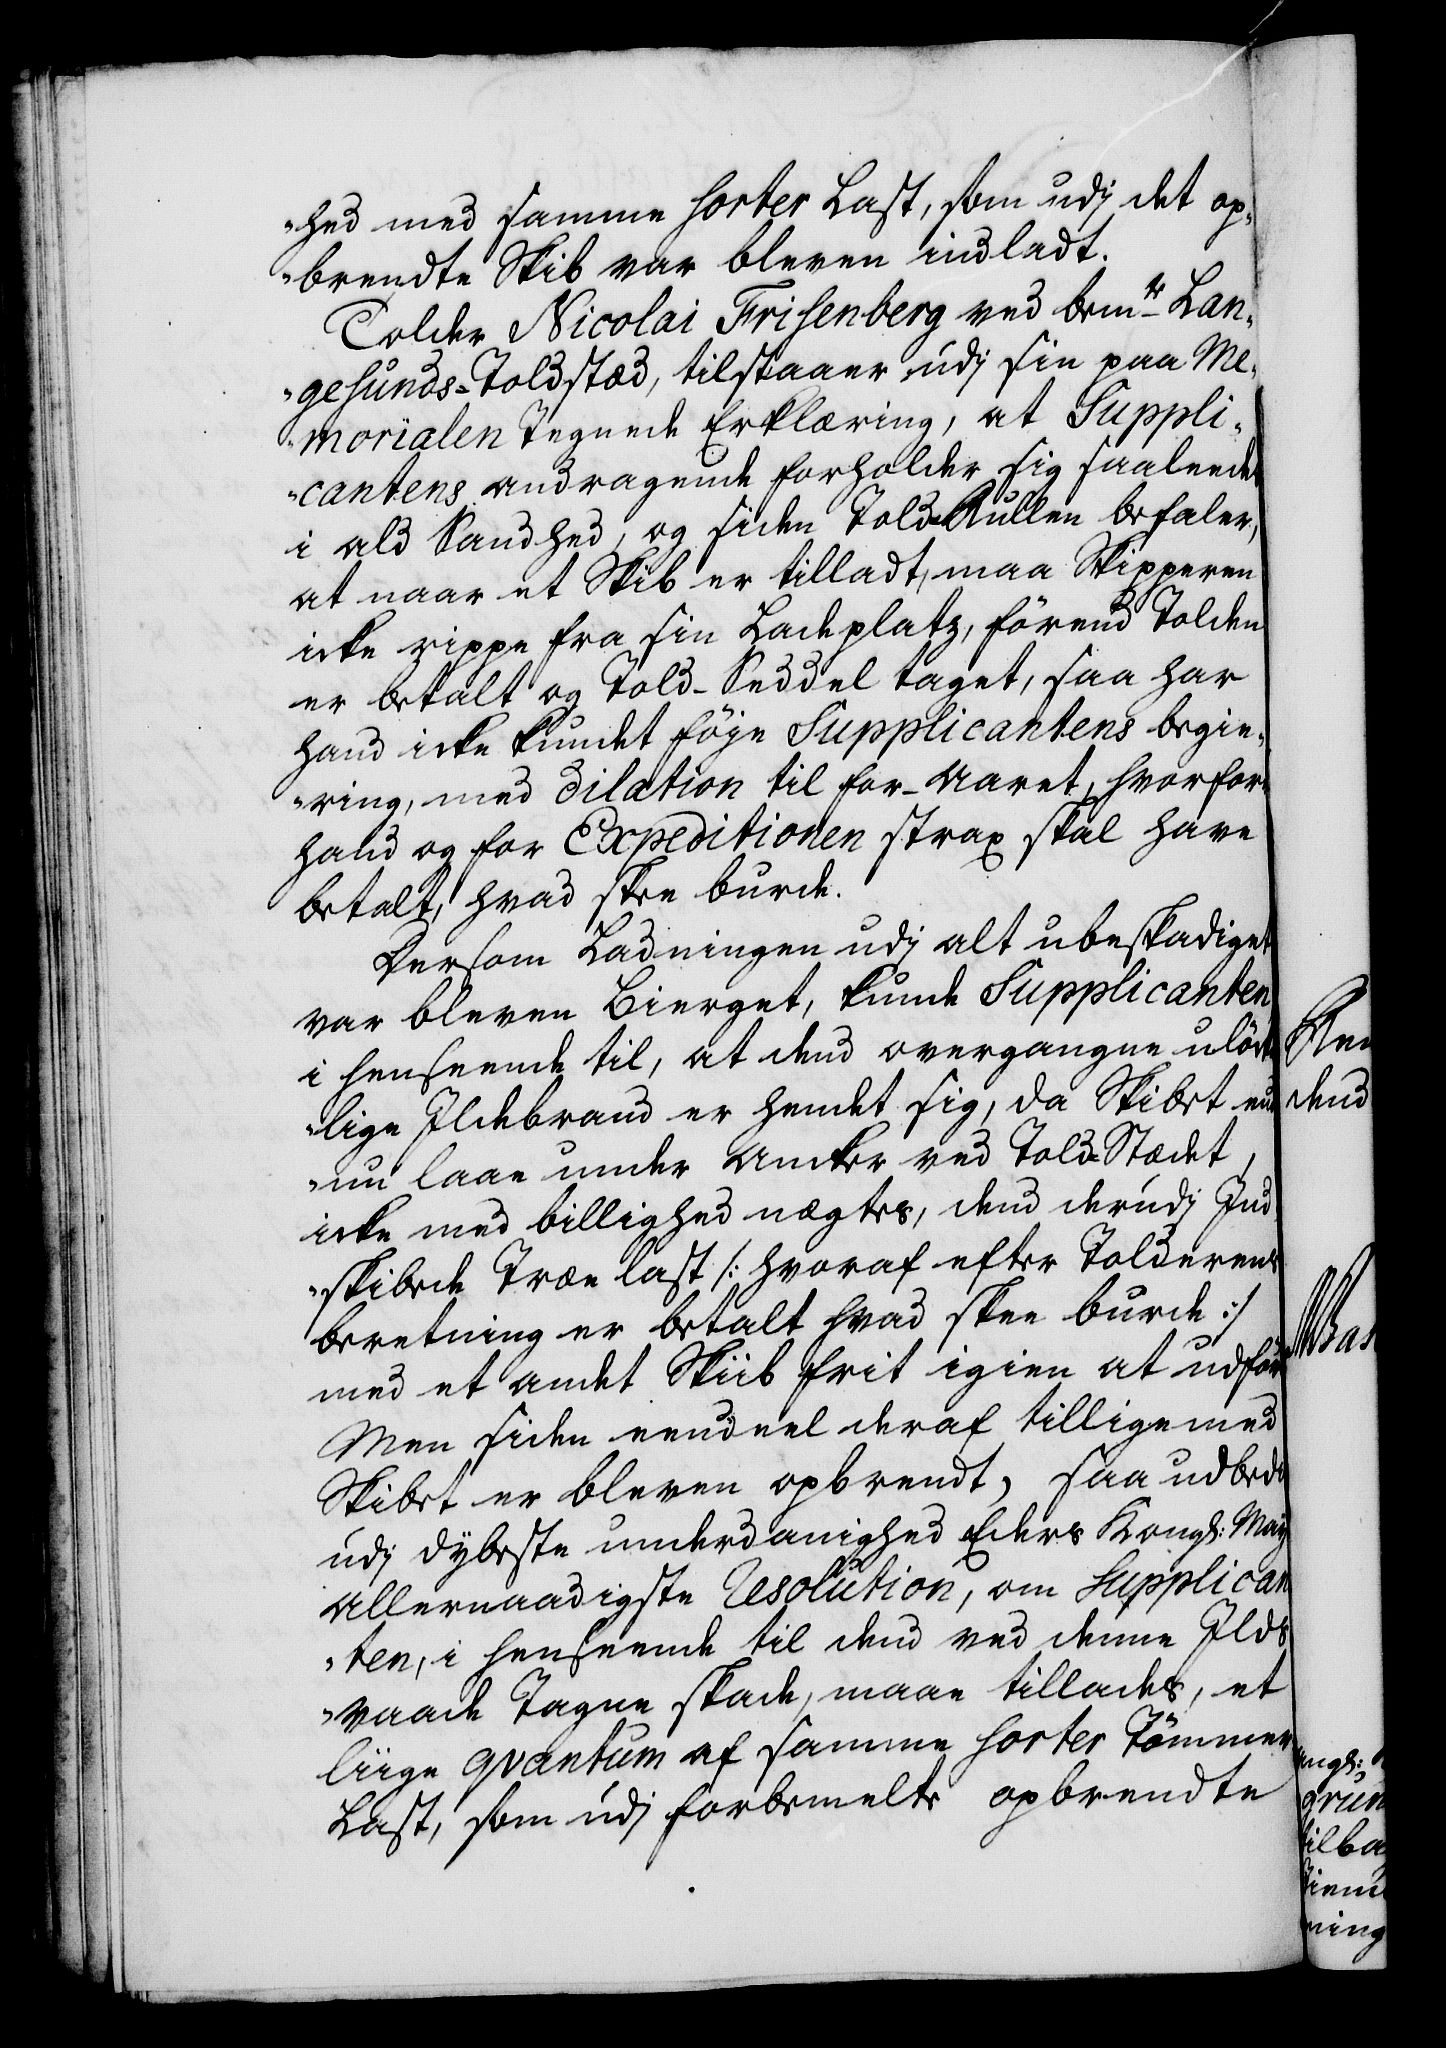 „hed med samme sorter Last, som udj det op„
„brendte Skib var bleven indladt.
Tolder Nicolai Frisenberg ved bem.te Lan„
„gesunds-Toldstæd, tilstaaer udj sin paa Me„
„morialen Tegnede Erklæring, at Suppli„
„cantens andragende forholder sig saaleedes
i ald Sandhed, og siden Told-Rullen befaler,
at naar et Skib er tilladt, maa Skipperen
icke rippe fra sin Ladeplatz, förend Tolden
er betalt og Told-Seddel taget, saa har
hand icke kundet föye Supplicantens begie„
„ring, med dilation til for-Aaret, hvorfor
hand og for Expeditionen strax skal have
betalt, hvad skee burde.
Dersom Ladningen udj alt ubeskadiget
var bleven Bierget, kunde Supplicanten
i henseende til, at dend overgangne ulöck
„lige Ildebrand er hendet sig, da Skibet end
„nu laae under Ancker ved Told-Stædet,
icke med billighed nægtes, dend derudj Ind
„skibede Træelast /: hvoraf efter Tolderens
beretning er betalt hvad skee burde :/
med et andet Skiib frit igien at udföre
Men siden eendeel deraf tilligemed
Skibet er bleven opbrendt, saa udbedes
udj dybeste underdanighed Eders Kongl: May
allernaadigste Resolution, om Supplican
„ten, i henseende til dend ved denne Ilds
„vaade Tagne skade, maae tillades, et
liige qvantum af samme sorter Tömmer
Last, som udj forbemelte opbrendte